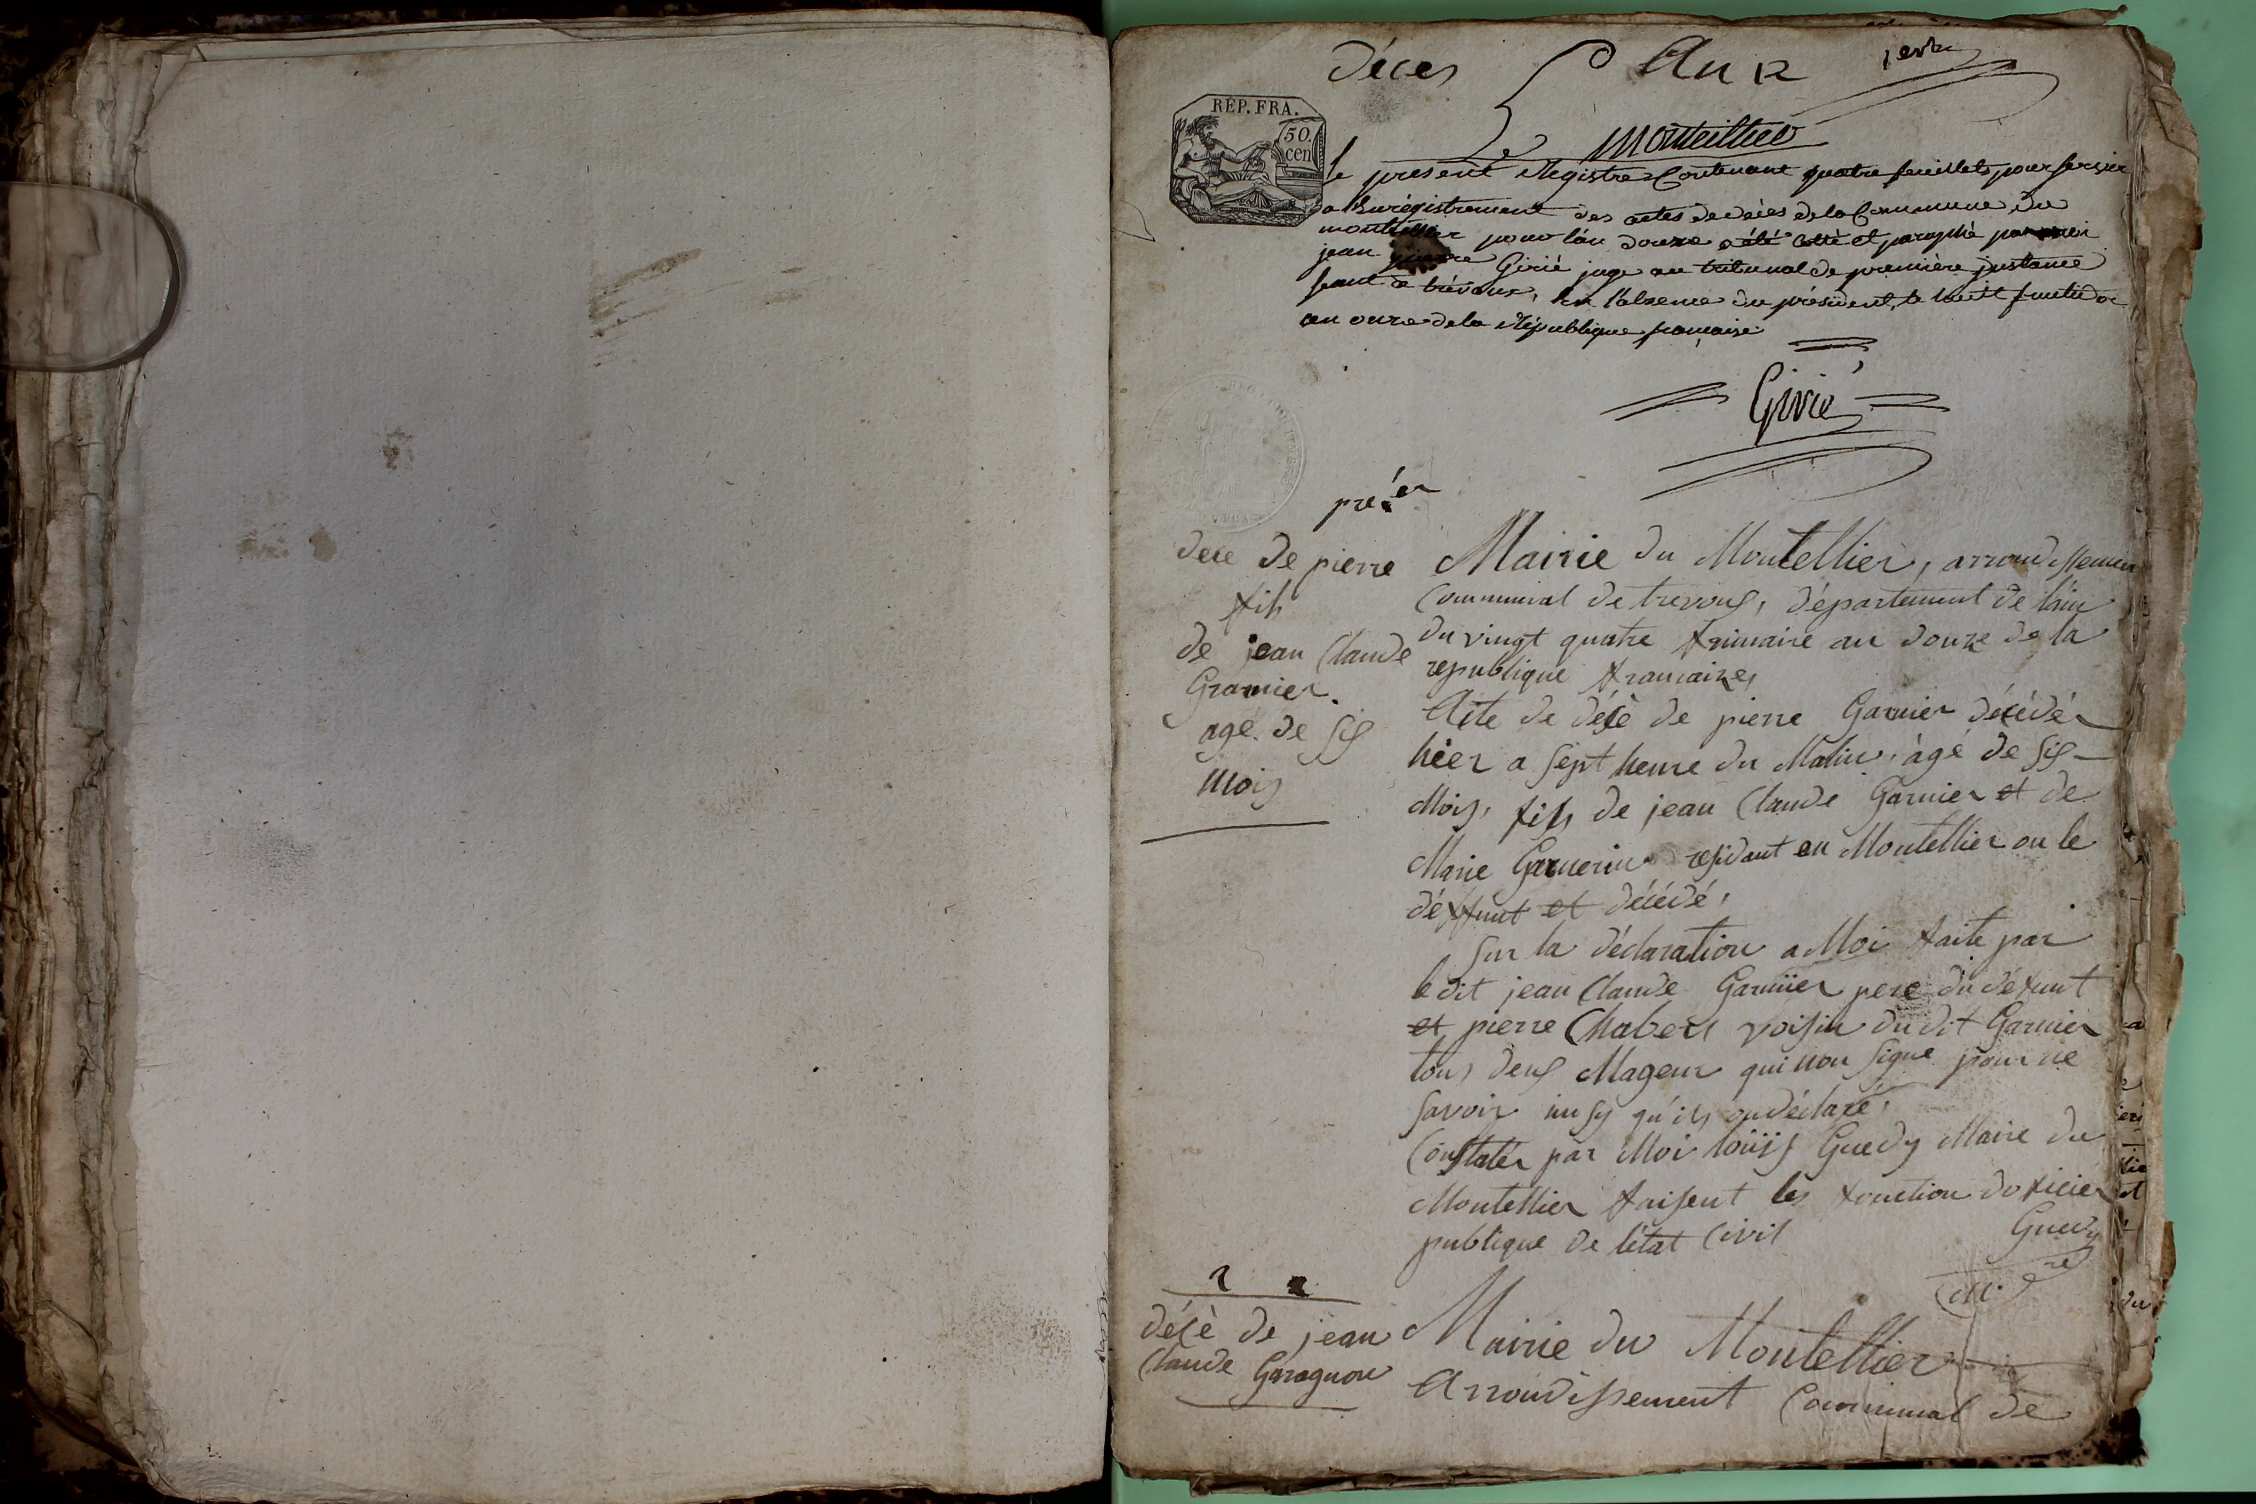 décés An 12 1er
RÉP. FRA.
50
cen
Monteillier
le present Registre Contenant quatre feuillets pour servir
a l'enrégistrement des actes de décès de la Commune du
montellier pour l'an douze a été Cotté et paraphé par moi
jean Girié juge au tribunal de première jnstance
seant a trévoux, En l'absence du président, le huit fructidor
an onze de la République francaise
Girié
pre.er
dece de pierre
fils
de jean Claude
Granier.
agé de six
Mois
Mairie du Montellier, arrondissement
Communal de trevoux, département de l'ain
du vingt quatre frimaire an douze de la
republique francaize,
Acte de décè de pierre Garnier décédér
hier a sept heure du Matin, àgé de six
Mois, fils de jean Claude Garnier et de
Marie Garnerin residant en Montellier ou le
déffunt et décédé,
sur la déclaration a Moi faite par
le dit jean Claude Garnier pere du défunt
et pierre Chabert voisin du dit Garnier
tous deux Mageur qui non signe pour ne
savoir insy qu'ils on déclaré,
Constater par Moi loüis Guedy Maire du
Montellier faisent les fonction doficier
publique de l'état Civil
Guedy
M.re
2 2
décè de jean
Claude Garagnon
Mairie du Montellier
Arrondissement Communal de